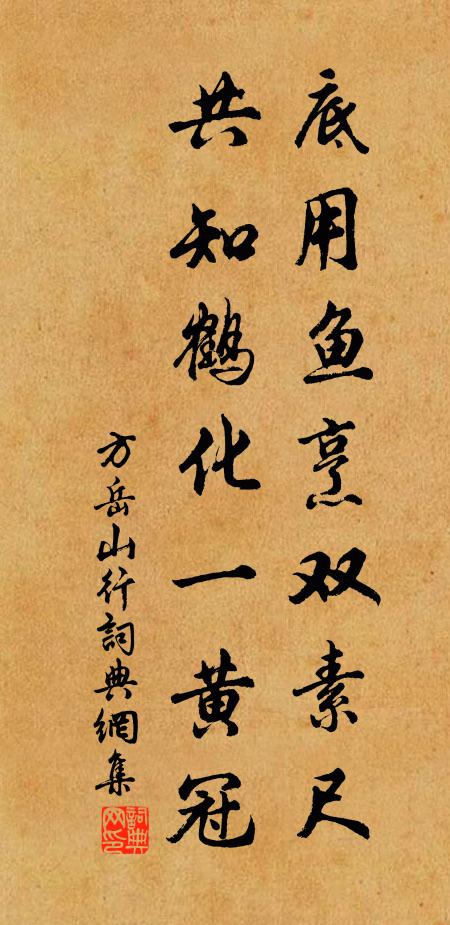 底用鱼烹双素尺
共知鹤化一黄冠
方岳山行詞典網集
詞典网印